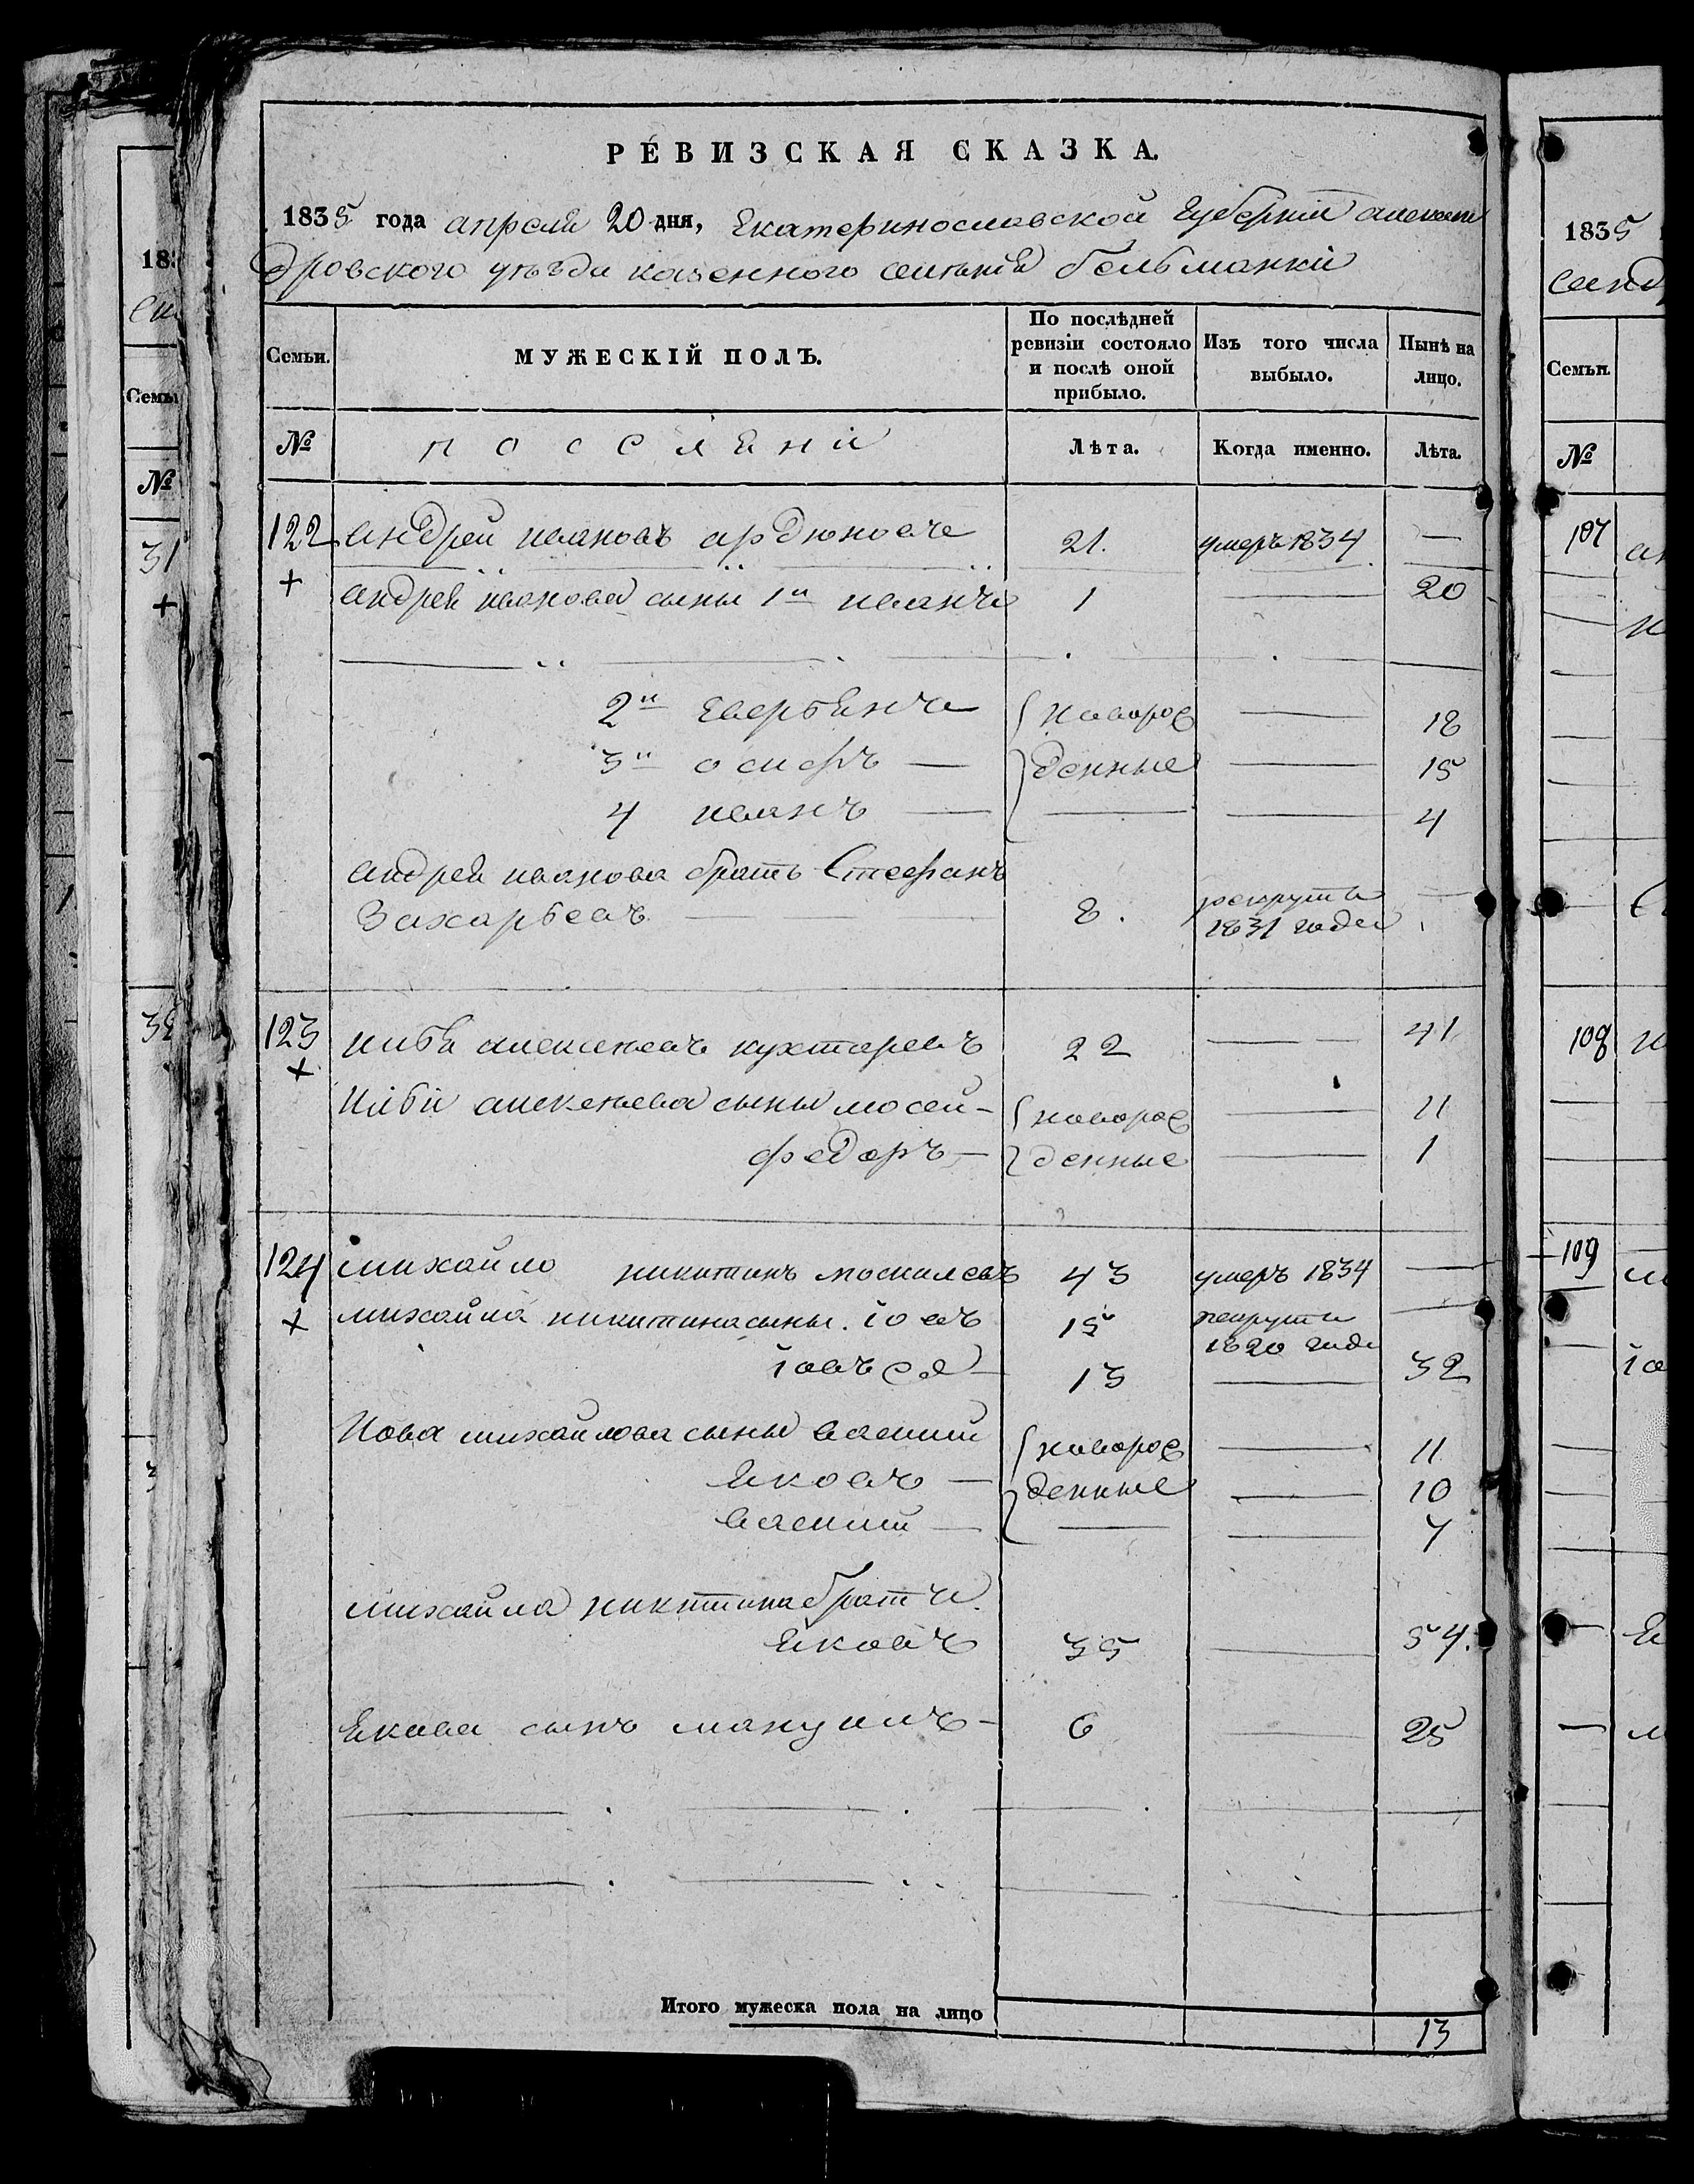 РЕВИЗСКАЯ СКАЗКА.
1835 года апреля 20 дня, Екатеринославской Губерніи алексан
дровского уѣзда казенного селенія Гельманки
Семьи.
МУЖЕСКІЙ ПОЛЪ.
По послѣдней ревизіи состояло и послѣ оной прибыло.
Изъ того числа выбыло.
Нынѣ на лицо.
№
поселяни
Лѣта.
Когда именно.
Лѣта.
122 андрей ивановъ 21. умеръ 1834 —
+ андрея иванова сыны 1й иванъ 1 — 20
2й — 18
новорож
3й осифъ — денные — 15
4 иванъ — — — 4
андрея иванова братъ Стефанъ
Захарьевъ — 8. рекрутъ —
1831 года
123 алексеевъ кухтаревъ 22 — 41
+ алексеева сыны мосей — новорож — 11
федоръ — денные — 1
124 михайло никитинъ москалевъ 43 умеръ 1834 —
+ михайла никитина сыны. іовъ 15 рекрутъ —
1820 года
іовъ 13 — 32
Иова михайлова сыны василий новорож — 11
Яковъ — денные — 10
василий — — — 7
михайла никитина братъ
Яковъ 35 — 54.
Якова сынъ мануилъ — 6 — 25
Итого мужеска пола на лицо 13
18
Семьи
№
31
+
1835
Семьи.
№
107
108
109